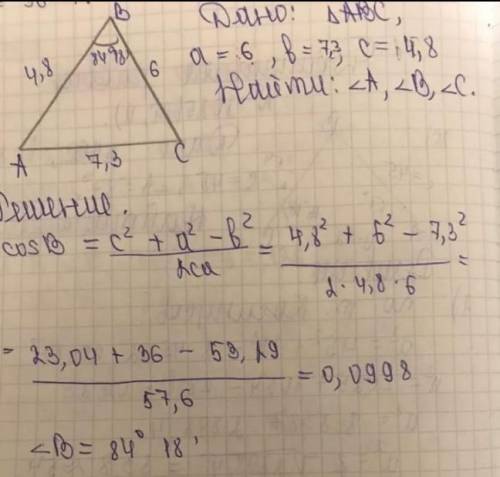 B
84°18'
4,8
6
A
7,3
C
Дано: ΔABC,
a = 6, b = 7,3, c = 4,8
Найти: ∠A, ∠B, ∠C.
Решение.
cosB = c² + a² - b² / 2ca = 4,8² + 6² - 7,3² / 2·4,8·6 =
= 23,04 + 36 - 53,29 / 57,6 = 0,0998
∠B = 84° 18'